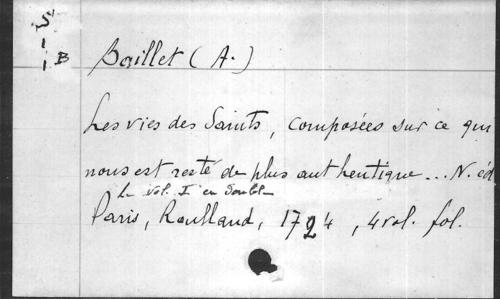 S
1
1 B
Baillet (A.)
Les vies des Saints, composées sur ce qui
nous est resté de plus authentique... N. éd
le vol. I en double
Paris, Roulland, 1724, 4 vol. fol.